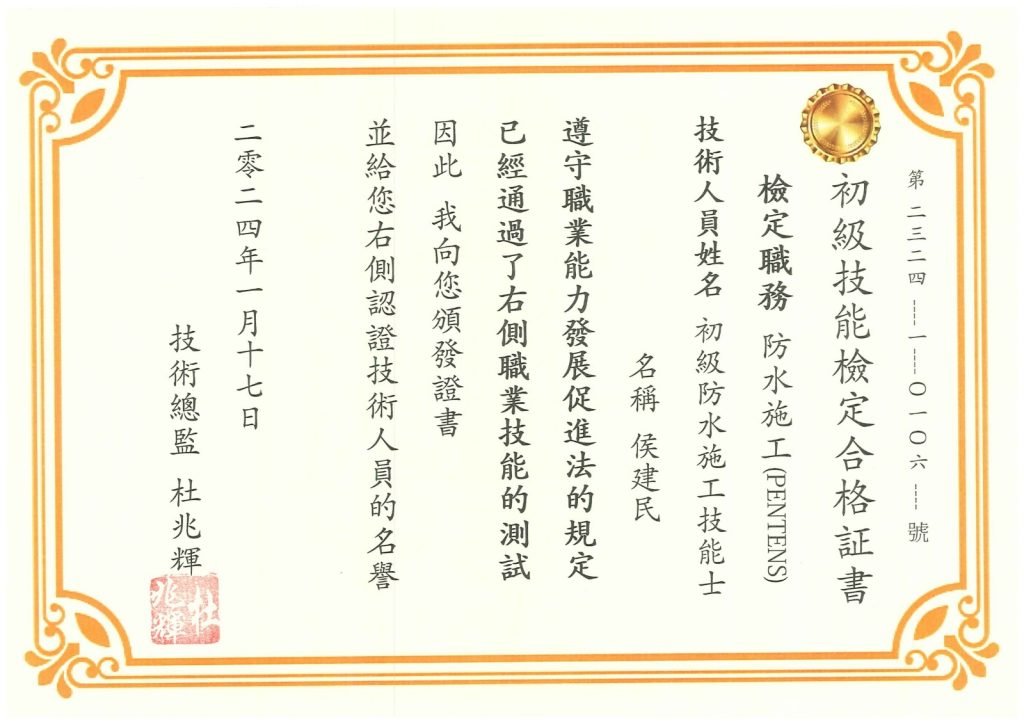 第 二三二四 ---- 一 ---- 〇一〇六 ---- 號
初級技能檢定合格証書
檢定職務 防水施工(PENTENS)
技術人員姓名 初級防水施工技能士
名稱 侯建民
遵守職業能力發展促進法的規定
已經通過了右側職業技能的測試
因此 我向您頒發證書
並給您右側認證技術人員的名譽
二零二四年一月十七日
技術總監 杜兆輝
杜兆輝